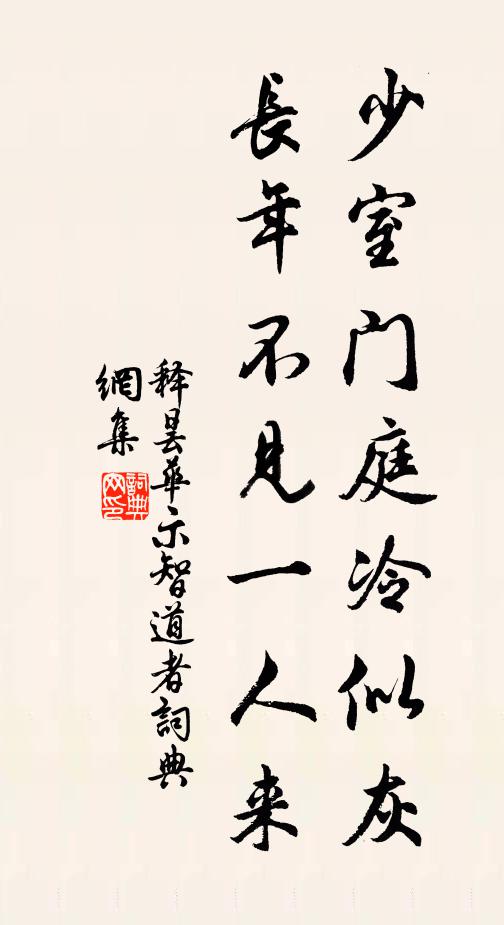 少室门庭冷似灰
長年不见一人来
释昙華示智道者詞典
網集
詞典
网印